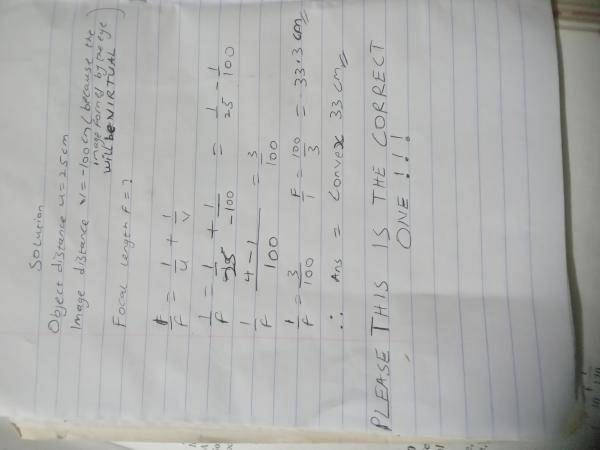 Solution
Object distance u = 25cm
Image distance v = -100cm (because the
image formed by the eye
will be VIRTUAL)
Focal length F = ?
1/F = 1/u + 1/v
1/F = 1/25 + 1/-100 = 1/25 - 1/100
1/F = 4-1/100 = 3/100
1/F = 3/100 F/1 = 100/3 = 33.3cm
∴ Ans = Convex 33cm
PLEASE THIS IS THE CORRECT
ONE!!!